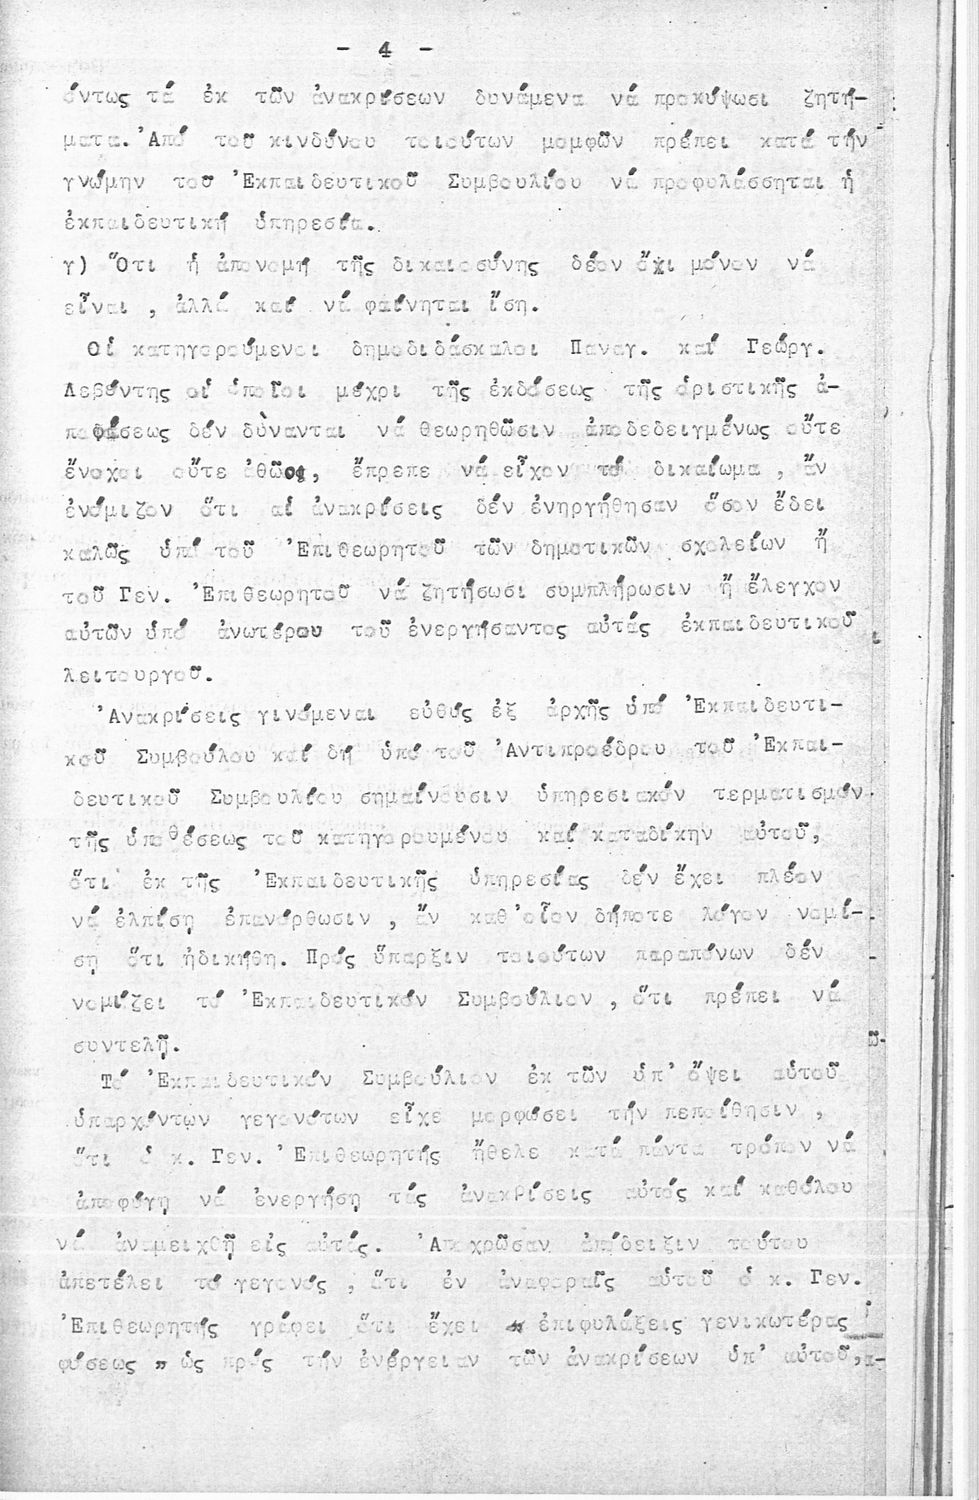 - 4 -
όντως τά ἐκ τῶν ἀνακρίσεων δυνάμενα νά προκύψωσι ζητή-
ματα. Ἀπό τοῦ κινδύνου τοιούτων μομφῶν πρέπει κατά τήν
γνώμην τοῦ Ἐκπαιδευτικοῦ Συμβουλίου νά προφυλάσσηται ἡ
ἐκπαιδευτική ὑπηρεσία.
γ) Ὅτι ἡ ἀπονομή τῆς δικαιοσύνης δέον ὄχι μόνον νά
εἶναι , ἀλλά καί νά φαίνηται ἴση.
Οἱ κατηγορούμενοι δημοδιδάσκαλοι Παναγ. καί Γεώργ.
Λεβέντης οἱ ὁποῖοι μέχρι τῆς ἐκδόσεως τῆς ὁριστικῆς ἀ-
ποφάσεως δέν δὺνανται νά θεωρηθῶσιν ἀποδεδειγμένως οὔτε
ἔνοχοι οὔτε ἀθῶοι, ἔπρεπε νά εἶχον τό δικαίωμα , ἄν
ἐνόμιζον ὅτι αἱ ἀνακρίσεις δέν ἐνηργήθησαν ὅσον ἔδει
καλῶς ὑπό τοῦ Ἐπιθεωρητοῦ τῶν δημοτικῶν σχολείων ἤ
τοῦ Γεν. Ἐπιθεωρητοῦ νά ζητήσωσι συμπλήρωσιν ἤ ἔλεγχον
αὐτῶν ὑπό ἀνωτέρου τοῦ ἐνεργήσαντος αὐτάς ἐκπαιδευτικοῦ
λειτουργοῦ.
Ἀνακρίσεις γινόμεναι εὐθύς ἐξ ἀρχῆς ὑπό Ἐκπαιδευτι-
κοῦ Συμβούλου καί δή ὑπό τοῦ Ἀντιπροέδρου τοῦ Ἐκπαι-
δευτικοῦ Συμβουλίου σημαίνουσιν ὑπηρεσιακόν τερματισμόν
τῆς ὑποθέσεως τοῦ κατηγορουμένου καί καταδίκην αὐτοῦ,
ὅτι ἐκ τῆς Ἐκπαιδευτικῆς ὑπηρεσίας δέν ἔχει πλέον
νά ἐλπίσῃ ἐπανόρθωσιν , ἄν καθ'οἷον δήποτε λόγον νομί-
σῃ ὅτι ἠδικήθη. Πρός ὕπαρξιν τοιούτων παραπόνων δέν
νομίζει τό Ἐκπαιδευτικόν Συμβούλιον , ὅτι πρέπει νά
συντελῇ.
Τό Ἐκπαιδευτικόν Συμβούλιον ἐκ τῶν ὑπ' ὄψει αὐτοῦ
ὑπαρχόντων γεγονότων εἶχε μορφώσει τήν πεποίθησιν ,
ὅτι ὁ κ. Γεν. Ἐπιθεωρητής ἤθελε κατά πάντα τρόπον νά
ἀποφύγῃ νά ἐνεργήσῃ τάς ἀνακρίσεις αὐτάς καί καθόλου
νά ἀναμειχθῇ εἰς αὐτάς. Ἀποχρῶσαν ἀπόδειξιν τούτου
ἀπετέλει τό γεγονός , ὅτι ἐν ἀναφοραῖς αὐτοῦ ὁ κ. Γεν.
Ἐπιθεωρητής γράφει ὅτι ἔχει " ἐπιφυλάξεις γενικωτέρας
φύσεως " ὡς πρός τήν ἐνέργειαν τῶν ἀνακρίσεων ὑπ' αὐτοῦ, α-